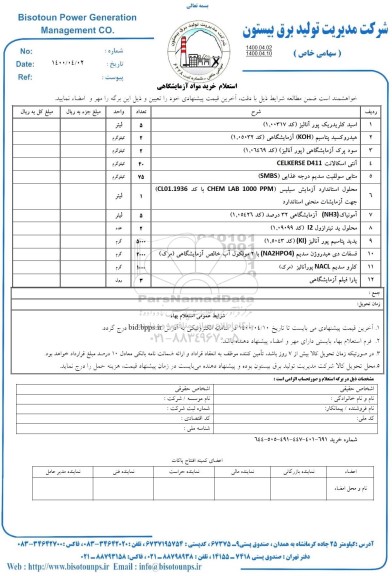 بسمه تعالی
Bisotoun Power Generation
Management CO.
شرکت مدیریت تولید برق بیستون
( سهامی خاص )
1400.04.02
1400.04.10
No: شماره :
Date: ۱۴۰۰/۰۴/۰۲ تاریخ :
پیوست : Ref:
استعلام خرید مواد آزمایشگاهی
خواهشمند است ضمن مطالعه شرایط ذیل با دقت، آخرین قیمت پیشنهادی خود را تعیین و ذیل این برگه را مهر و امضاء نمایید.
ردیف شرح تعداد واحد مبلغ جزء به ریال مبلغ کل به ریال
۱ اسید کلریدریک پور آنالیز (کد ۱,۰۰۳۱۷) ۵ لیتر
۲ هیدروکسید پتاسیم (KOH) آزمایشگاهی (کد ۱,۰۵۰۳۳) ۲ کیلوگرم
۳ سود پرک آزمایشگاهی (پور آنالیز) (کد ۱,۰۶۴۶۹) ۲ کیلوگرم
۴ آنتی اسکالانت CELKERSE D411 ۴۰ کیلوگرم
۵ متابی سولفیت سدیم درجه غذایی (SMBS) ۷۵ کیلوگرم
۶ محلول استاندارد آزمایش سیلیس (CHEM LAB 1000 PPM با کد CL01.1936) جهت آزمایشات منحنی استاندارد ۱ لیتر
۷ آمونیاک (NH3) آزمایشگاهی ۳۲ درصد (کد ۱,۰۵۴۲۶) ۵ لیتر
۸ محلول ید تیترازول I2 (کد ۱,۰۹۰۹۹) ۲ عدد
۹ یدید پتاسیم پور آنالیز (KI) (کد ۱,۵۰۴۳) ۵۰۰۰ گرم
۱۰ فسفات دی هیدروژن سدیم (NA2HPO4) با ۲ مولکول آب خالص آزمایشگاهی (مرک) ۲۰۰۰ گرم
۱۱ کلرو سدیم NACL پورآنالیز (مرک) ۱۰۰۰ گرم
۱۲ پارا فیلم آزمایشگاهی ۳ عدد
جمع :
زمان تحویل:
ParsNamadData
۰۲۱-۸۸۳۴۹۶۷۰
شرایط عمومی استعلام بهاء
۱. آخرین قیمت پیشنهادی می بایست تا تاریخ ۱۴۰۰/۰۴/۱۰ در سامانه الکترونیکی به آدرس bid.bpps.ir درج گردد.
۲. فرم استعلام بهاء بایستی دارای مهر و امضاء پیشنهاد دهنده باشد.
۳. در صورتیکه زمان تحویل کالا بیش از ۷ روز باشد، تأمین کننده موظف به انعقاد قرارداد و ارائه ضمانت نامه بانکی معادل ۱۰ درصد مبلغ قرارداد خواهد بود
۵. محل تحویل کالا شرکت مدیریت تولید برق بیستون بوده و پیشنهاد دهنده می‌بایست در زمان پیشنهاد قیمت، هزینه حمل را درج نماید.
مشخصات ذیل در برگه استعلام و صورتحساب الزامی است :
اشخاص حقیقی اشخاص حقوقی
نام و نام خانوادگی : نام موسسه / شرکت :
نام فروشنده / پیمانکار: شماره ثبت شرکت :
کد ملی: کد اقتصادی :
شناسه ملی :
شماره خرید ۶۹۱-۴۰۱-۴۴۷-۴۹۱-۵۰۵-۶۴۴
اعضای کمیته افتتاح پاکات
اعضاء نماینده بازرگانی نماینده مالی نماینده حراست نماینده فنی نماینده مدیر عامل
نام و محل امضاء
آدرس: کیلومتر ۲۵ جاده کرمانشاه به همدان ، صندوق پستی ۹-۶۷۳۷۵ ، کدپستی : ۶۷۳۷۱۹۵۷۵۴ ، تلفن : ۳۴۶۴۲۰۲۰-۰۸۳ ، فاکس : ۳۴۶۴۲۷۰۰-۰۸۳
دفتر تهران : صندوق پستی ۷۴۱۸-۱۴۱۵۵ ، تلفن : ۸۸۷۹۸۹۳۸-۰۲۱ ، فاکس : ۸۸۷۹۳۱۵۸-۰۲۱
Web : http://www.bisotounps.ir Email : info@bisotounps.ir